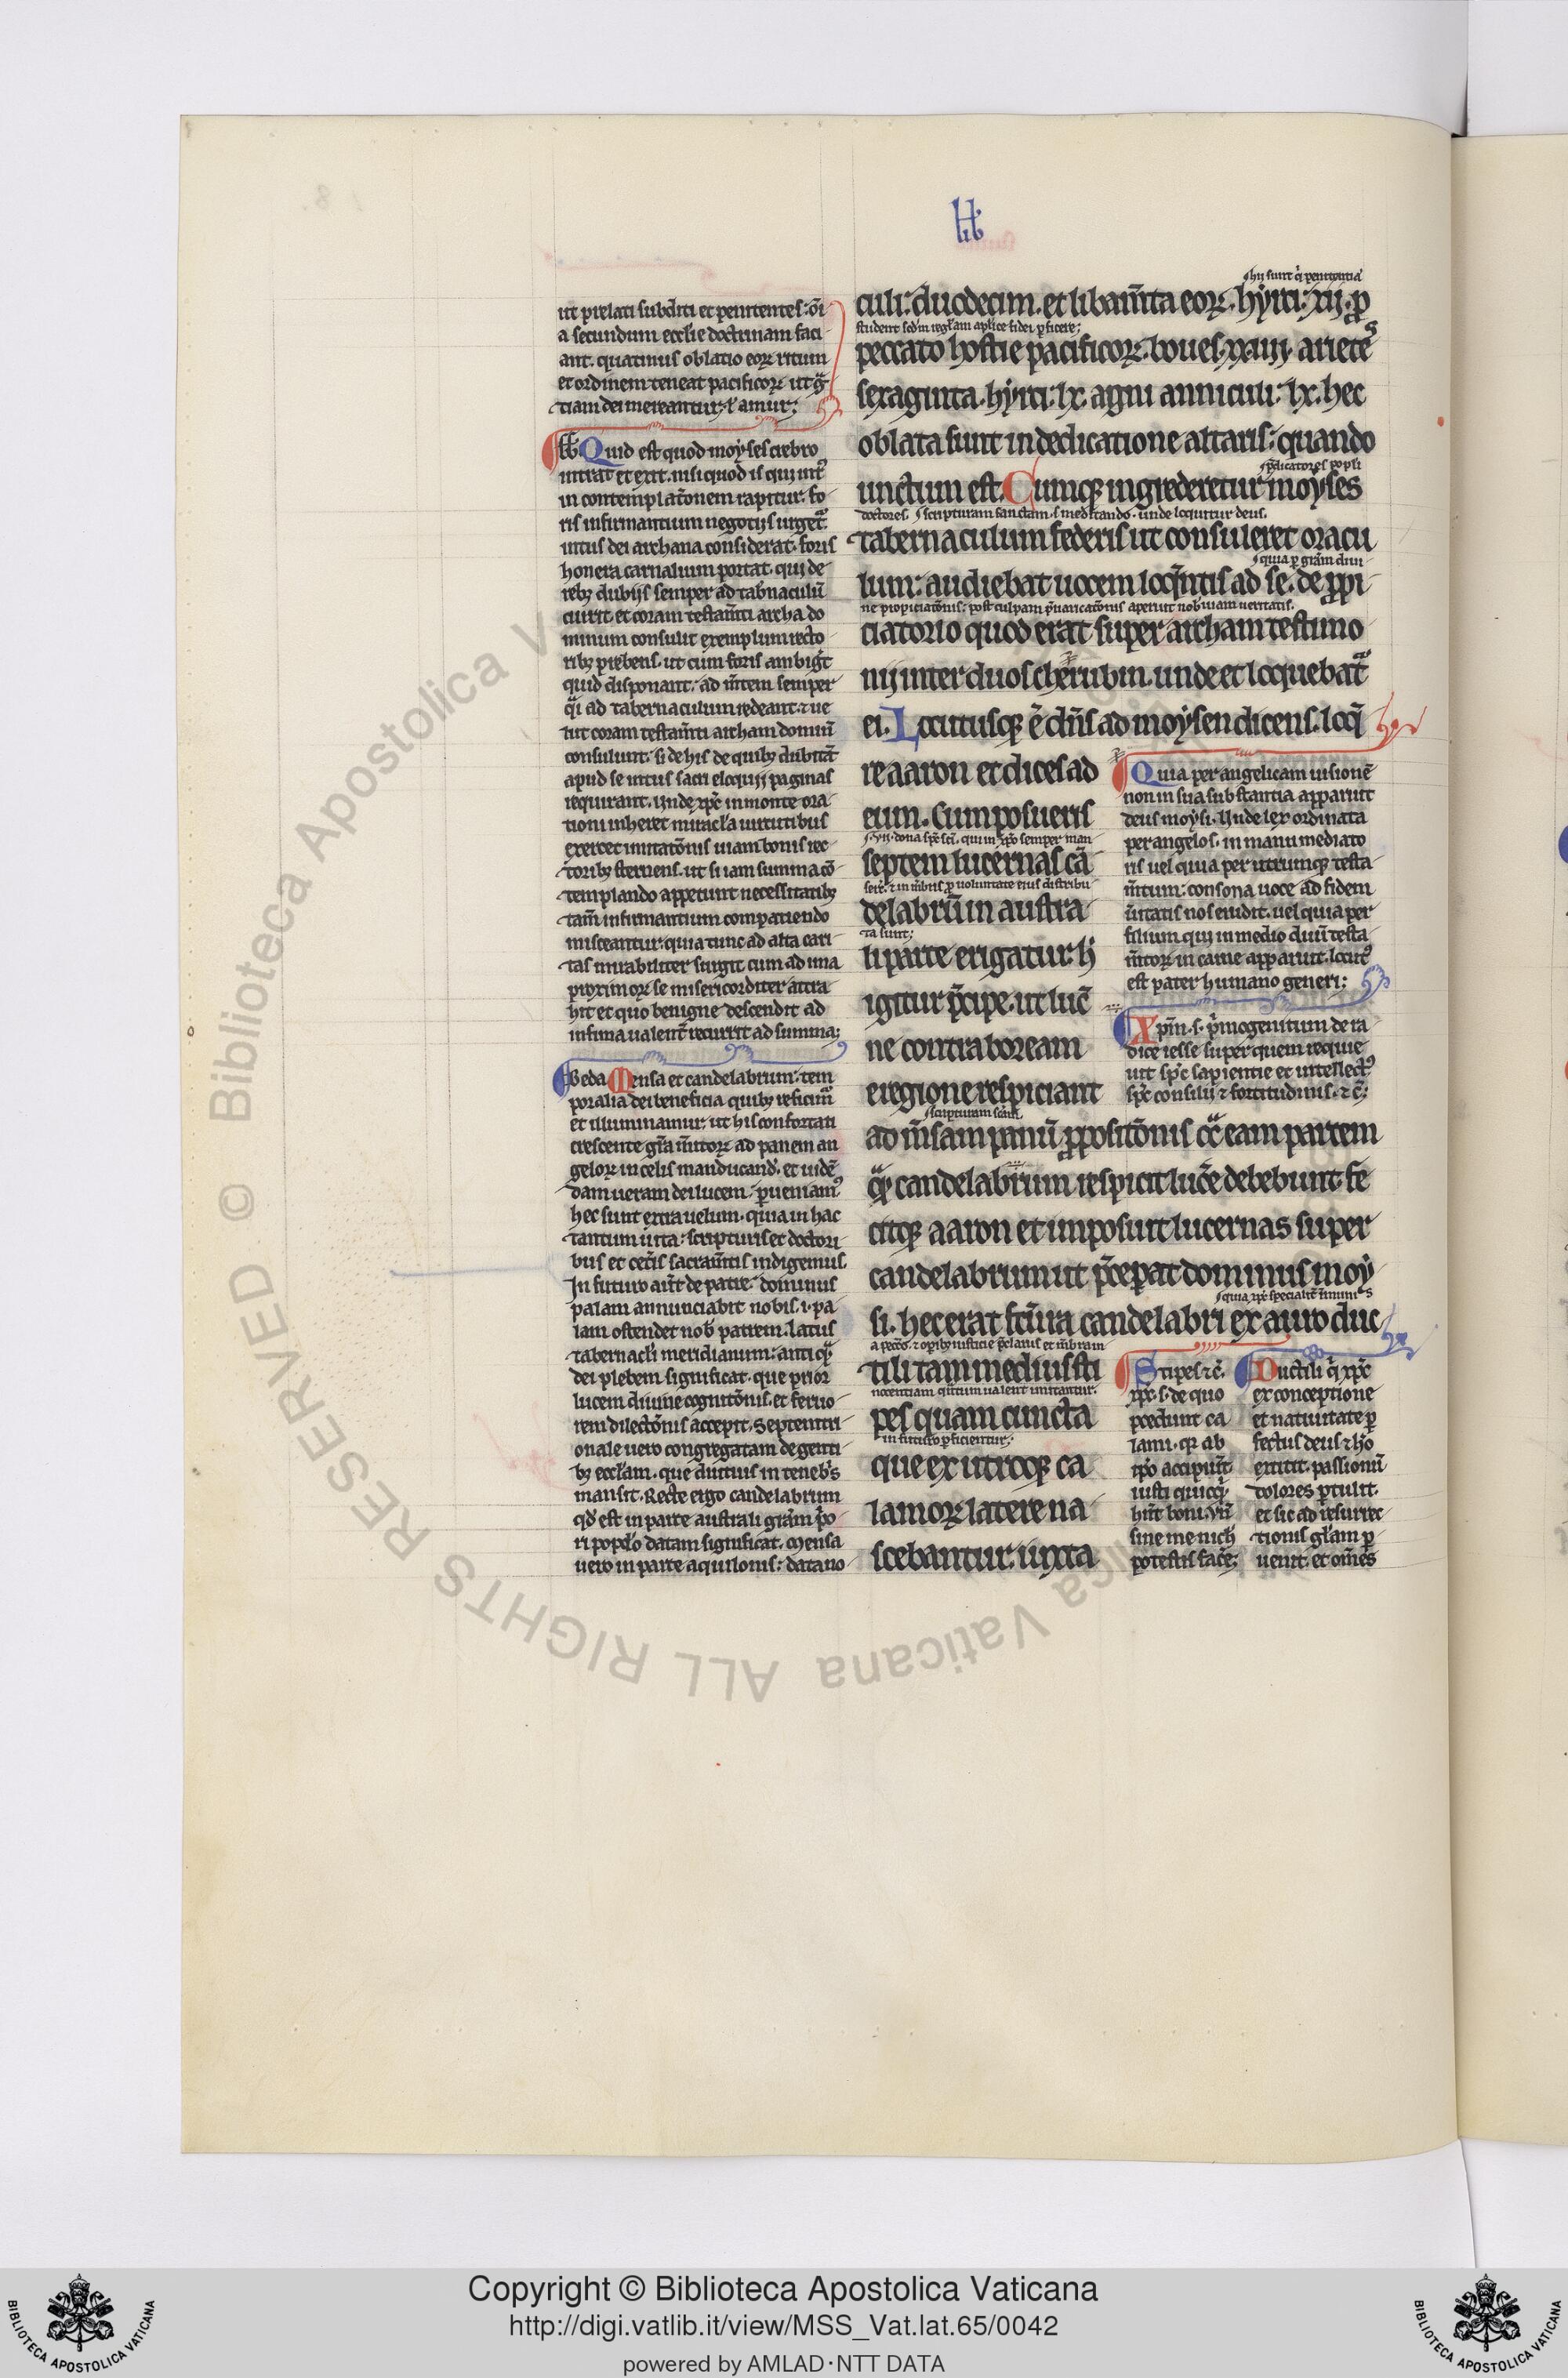 Lib
ut prelati subditi et penitentes: om̄i
a secundum ecclīe doctrinam faci
ant. quatinus oblatio eoꝝ ritum
et ordinem teneat pacificoꝝ ut gͣ
tiam dei mereantur; ł amur;
Quid est quod moyses crebro
intrat et exit. nisi quod is qui intͥ
in contemplat̄onem rapitur. fo
ris infirmantium negotijs urgetᷣ.
intus dei archana considerat. foris
honera carnalium portat. qui de
rebꝫ dubijs semper ad tab̄naculū
currit. et coram testam̄ti archa do
minum consulit exemplum recto
ribꝫ prebens. ut cum foris ambigūt
quid disponant: ad m̄tem semper
qͣi ad tabernaculum redeant. ⁊ ue
lut coram testam̄ti archam dominū
consulunt: si de his de quibꝫ dubitāt
apud se intus sacri eloquij paginas
requirant. Unde xp̄c in monte ora
tioni inheret miracl̄a uirtutibus
exercet imitat̄onis uiam bonis rec
toribꝫ sternens. ut si iam summa cō
templando appetunt necessitatibꝫ
tam̄ infirmantium compatiendo
misceantur: quia tunc ad alta cari
tas mirabiliter surgit cum ad ima
proximoꝝ se misericorditer attra
hit et quo benigne descendit ad
infima ualent̄ recurrit ad summa;
Beda Mensa et candelabrum: tem
poralia dei beneficia quibꝫ reficimᷣ
et illuminamur. ut his confortati
crescente gr̄a m̄itoꝝ ad panem an
geloꝝ in celis manducand̄. et uidē
dam ueram dei lucem: ꝑueniamꝰ
hec sunt extra uelum. quia in hac
tantum uita: scripturis et doctori
bus et cet̄is sacram̄tis indigemus.
In futuro aūt de patre: dominus
palam annunciabit nobis. i. pa
lam ostendet nob̄ patrem. latus
tabernacl̄i meridianum: antiqͣ
dei plebem significat. que prior
lucem diuine cognit̄onis. et feruo
rem dilect̄onis accepit. Septentri
onale uero congregatam de genti
bꝫ eccl̄am. que diutius in teneb̄s
mansit. Recte ergo candelabrum
qd̄ est in parte australi gr̄am pͥo
ri popl̄o datam significat. Mensa
uero in parte aquilonis: data no
hij sunt qͥ penitentia
culi: duodecim. et libam̄ta eoꝝ. hyrci: xij. ꝓ
student sed̄m regl̄am aplīce fidei ꝑficere;
peccato hostie pacificoꝝ. boues. xxiiij. arietes
sexaginta. hyrci: lx. agni anniculi: lx. hec
oblata sunt in dedicatione altaris: quando
p̄dicatores popl̄i
unctum est. Cumqꝫ ingrederetur moyses
doctores. scripturam sanctam. s. meditando. unde loquitur deus.
tabernaculum federis ut consuleret oracu
quia ꝑ gr̄am diui
lum: audiebat uocem loqn̄tis ad se. de ꝓpi
ne propiciat̄onis: post culpam p̄uaricat̄onis aperuit nob̄ uiam ueritatis.
ciatorio quod erat super archam testimo
nij inter duos cherubin. unde et loquebatᷣ
ei. Locutusqꝫ ē dn̄s ad moysen dicens. loq̄
re aaron et dices ad
eum. Cum posueris
.vii. dona sp̄c sc̄i. qui in xp̄o semper man
septem lucernas cā
ser̄t. ⁊ in m̄bris ꝑ uoluntate eius distribu
delabrum in austra
ta sunt;
li parte erigatur: h̄
igitur p̄cipe. ut lucē
ne contra boream
e regione respiciant
scripturam sām
ad m̄sam panū ꝓposit̄onis qͣ eam partem
qͣꝫ candelabrum respicit lucē debebunt. fe
citqꝫ aaron et imposuit lucernas super
candelabrum ut p̄ceperat dominus moy
quia xp̄c specialit̄ immunis
si. hec erat fc̄ura candelabri ex auro duc
a pecc̄o. ⁊ oꝑibꝫ iusticie p̄clarus et m̄bra in
tili tam medius sti
nocentiam qͣntum ualent imitantur.
pes quam cuncta
in futuro ꝑficientur;
que ex utroqꝫ ca
lamoꝝ latere na
scebantur. iuxta
Quia per angelicam uisionē
non in sua substantia apparuit
deus moysi. Unde lex ordinata
per angelos. in manu mediato
ris uel quia per utrumqꝫ testa
m̄tum: consona uoce ad fidem
ūitatis nos erudit. uel quia per
filium qui in medio duū testa
m̄toꝝ in carne apparuit. locutꝰ
est pater humano generi;
Xp̄m. s. pͥmogenitum de ra
dice iesse super quem requie
uit sp̄c sapientie et intellectꝰ
sp̄c consilij ⁊ fortitudinis. ⁊ c̄;
Stipes ⁊ c̄.
xp̄c. s. de quo
ꝓcedunt ca
lami. qꝛ ab
xp̄o accipiūt
iusti quicqͥd
hn̄t boni. Un̄
sine me nich̄
potestis facē;
Ductili qͥ xp̄c
ex conceptione
et natiuitate ꝑ
fectus deus ⁊ hō
extitit. passionū
dolores ꝑtulit.
et sic ad resurrec
tionis gl̄am ꝑ
uenit. et om̄es
© Biblioteca Apostolica Vaticana ALL RIGHTS RESERVED
Copyright © Biblioteca Apostolica Vaticana
http://digi.vatlib.it/view/MSS_Vat.lat.65/0042
powered by AMLAD·NTT DATA
BIBLIOTECA APOSTOLICA VATICANA
BIBLIOTECA APOSTOLICA VATICANA